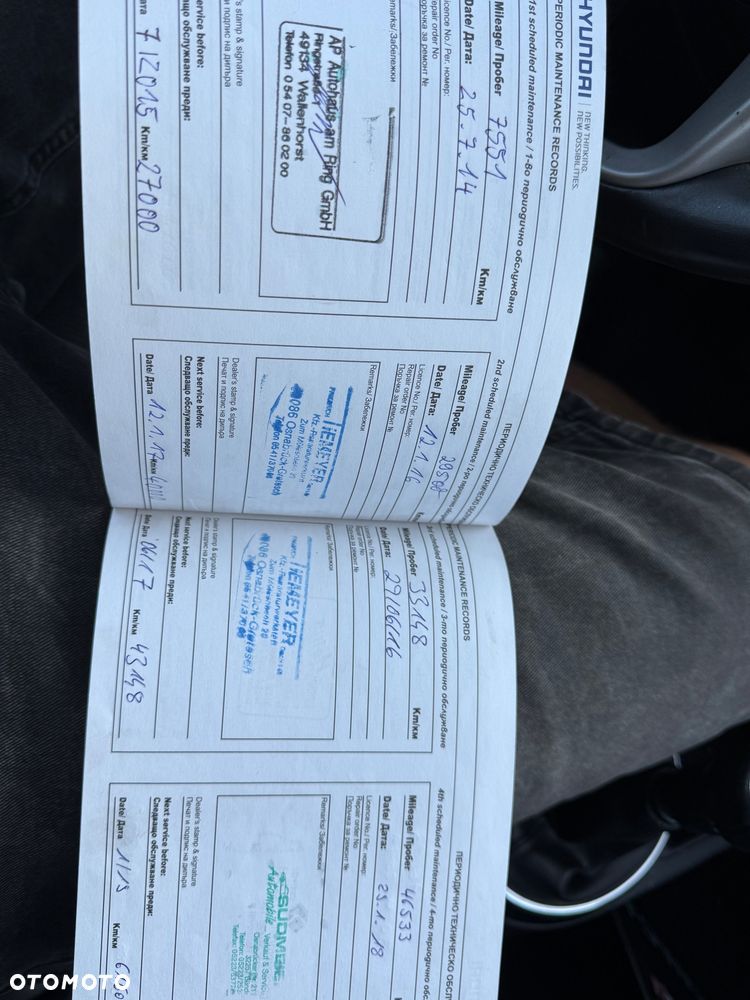 HYUNDAI | NEW THINKING.
NEW POSSIBILITIES.
PERIODIC MAINTENANCE RECORDS
1st scheduled maintenance / 1-во периодично обслужване
Mileage/ Пробег 7551 Km/км
Date/ Дата: 25.7.14
Licence No./ Рег. номер:
Repair order No
Поръчка за ремонт №
Remarks/ Забележки
AP Autohaus am Ring GmbH
49134 Wallenhorst
Telefon 0 54 07- 86 02 00
's stamp & signature
и подпис на дилъра
service before:
обслужване преди:
Дата 7/2015 Km/км 27000
ПЕРИОДИЧНО ТЕХНИЧЕСКО
2nd scheduled maintenance / 2-ро периодично
Mileage/ Пробег 29508
Date/ Дата: 12.1.16
Licence No./ Рег. номер:
Repair order No
Поръчка за ремонт №
Remarks/ Забележки
FRIEDRICH TIEMEYER
Kfz.-Reparaturwerkstatt
49086 Osnabrück-Gretesch
Dealer's stamp & signature
Печат и подпис на дилъра
Next service before:
Следващо обслужване преди:
Date/ Дата 12.1.17 Km/км
PERIODIC MAINTENANCE RECORDS
3rd scheduled maintenance / 3-то периодично обслужване
Mileage/ Пробег 33148 Km/км
Date/ Дата: 29/06/16
Licence No./ Рег. номер:
Repair order No
Поръчка за ремонт №
Remarks/ Забележки
FRIEDRICH TIEMEYER
Kfz.-Reparaturwerkstatt
49086 Osnabrück-Gretesch
Dealer's stamp & signature
Печат и подпис на дилъра
Next service before:
Следващо обслужване преди:
Date/ Дата 06/17 Km/км 43148
ПЕРИОДИЧНО ТЕХНИЧЕСКО ОБСЛ
4th scheduled maintenance / 4-то периодично обс
Mileage/ Пробег 46533
Date/ Дата: 25.1.18
Licence No./ Рег. номер:
Repair order No
Поръчка за ремонт №
Remarks/ Забележки
SUDMEIE
Automobile Verkauf & Servic
Dealer's stamp & signature
Печат и подпис на дилъра
Next service before:
Следващо обслужване преди:
Date/ Дата 1/19 Km/км
OTOMOTO